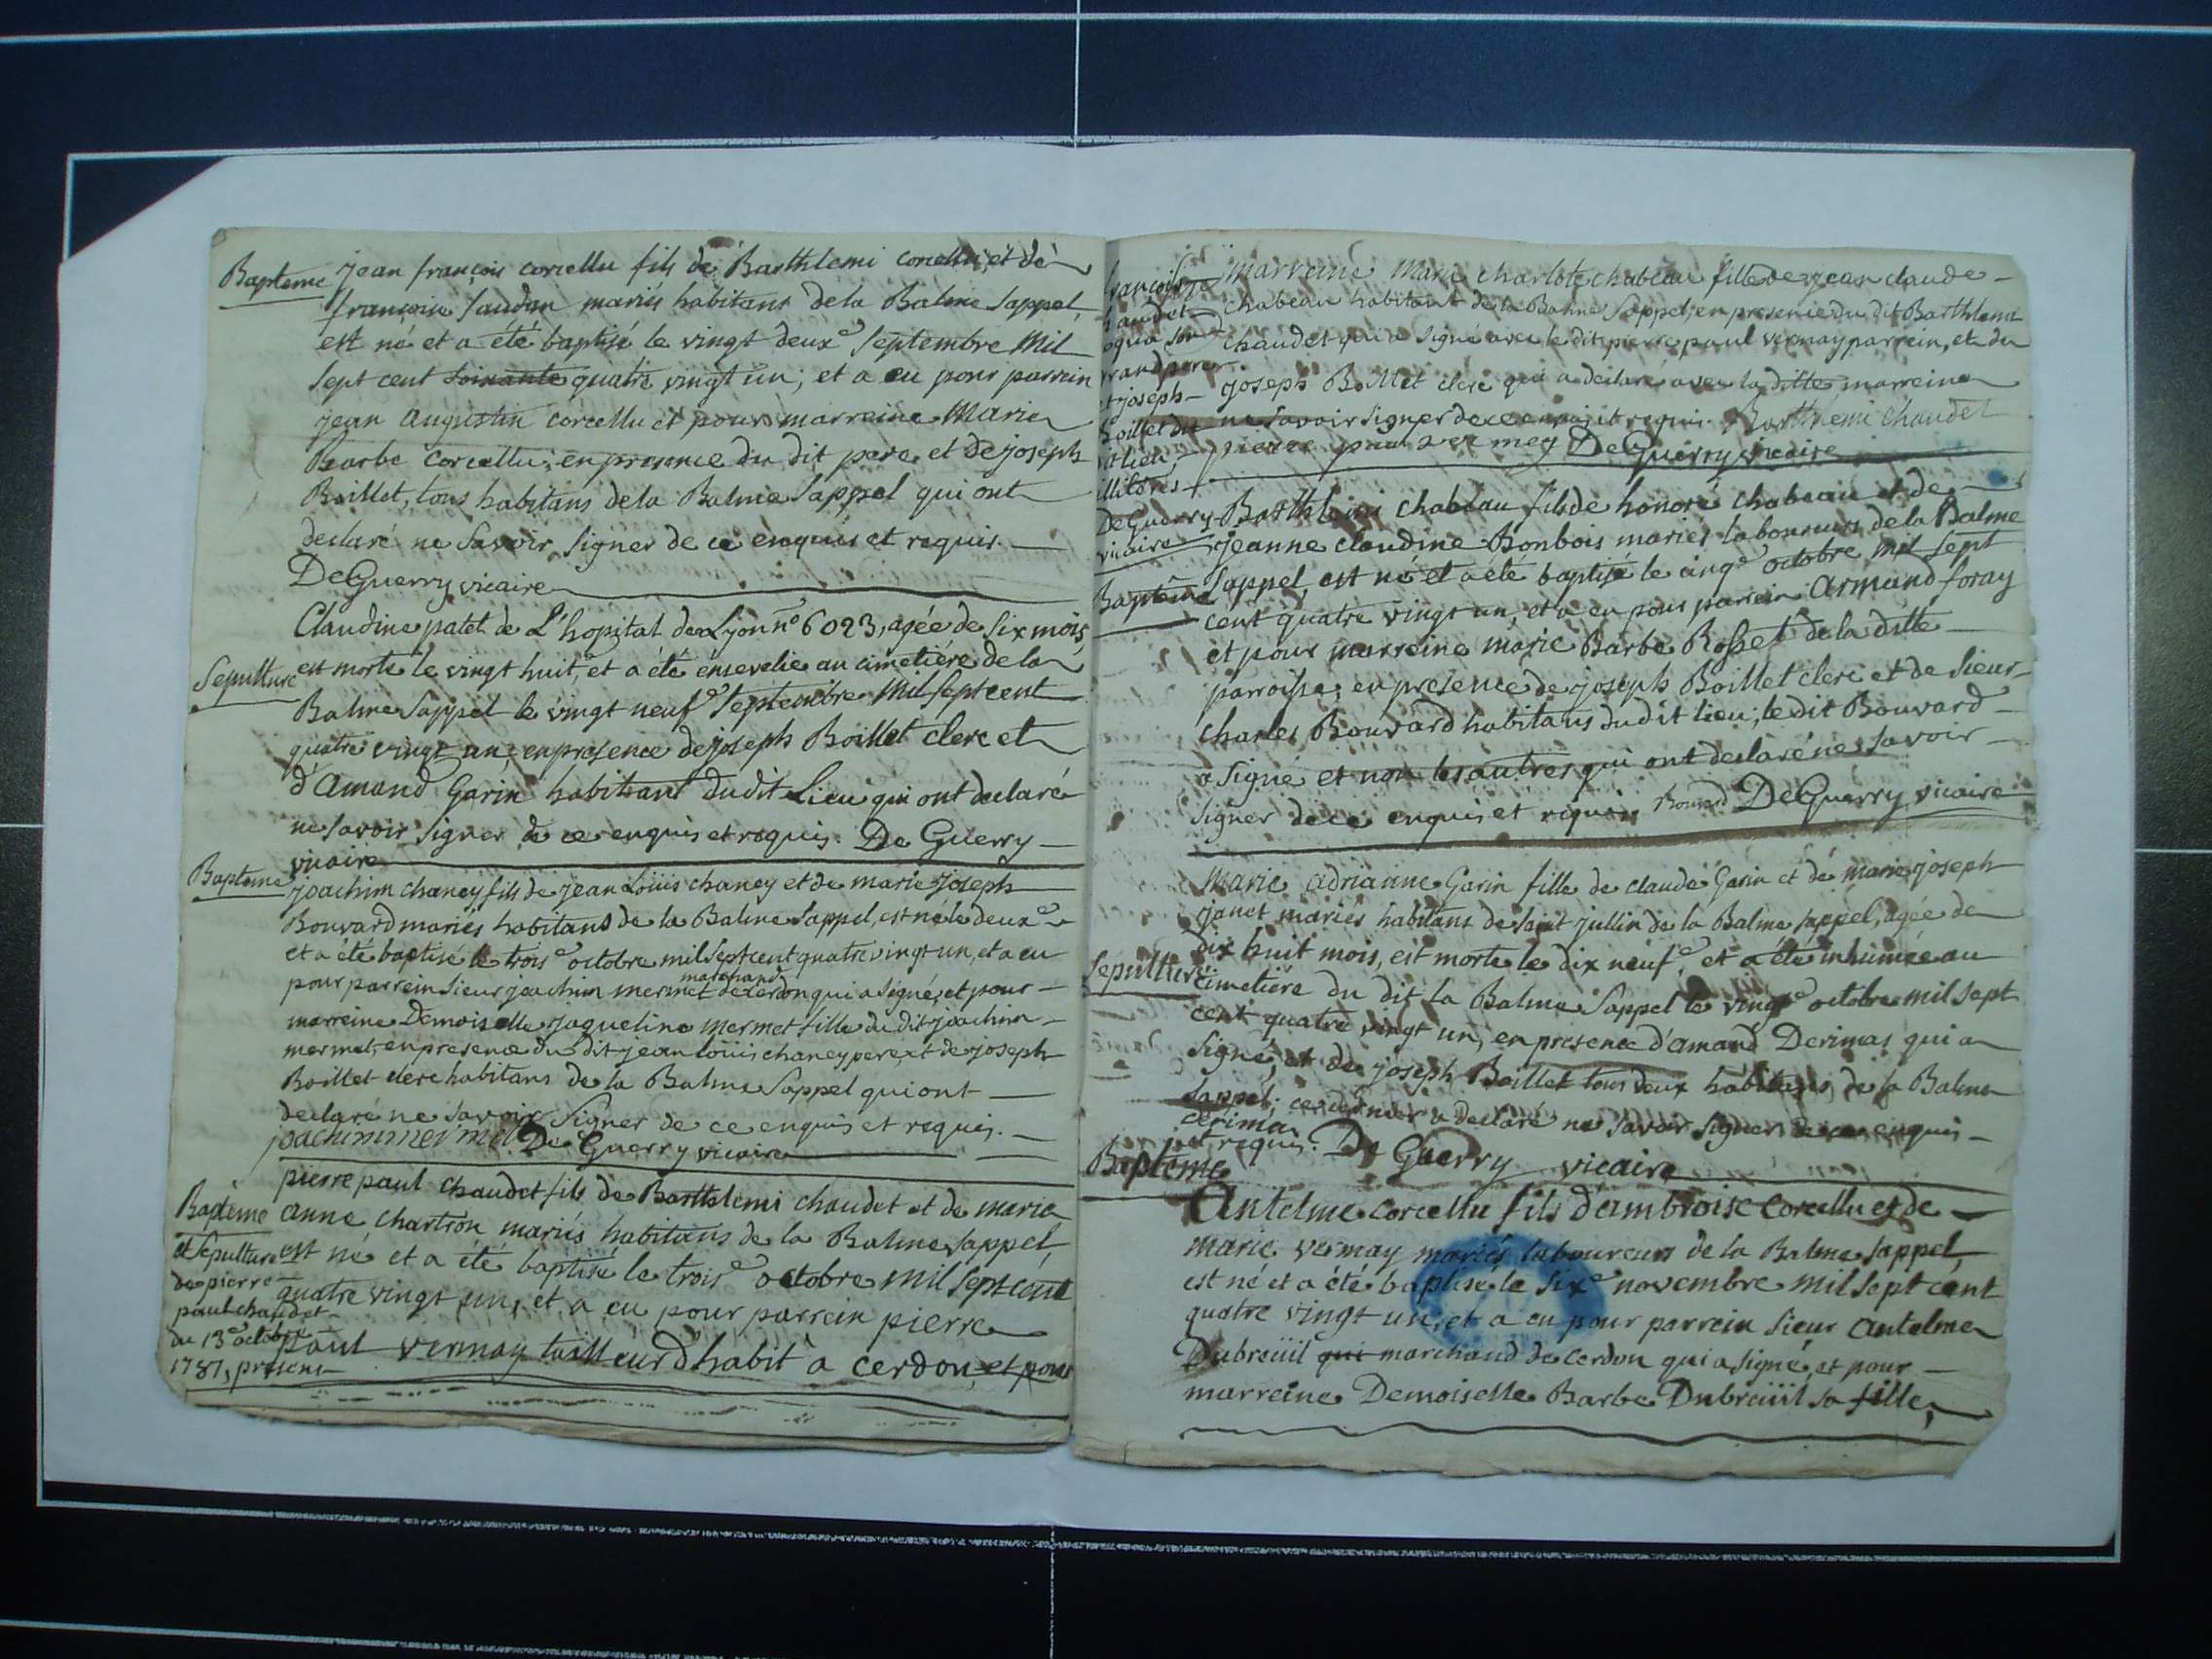 Bapteme
jean françois corcellu fils de Barthlemi corcellu, et de
françoise saudan mariés habitans de la Balme sappel,
est né et a été baptisé le vingt deux.e septembre mil
sept cent soixante quatre vingt un; et a eu pour parrein
jean augustin corcellu et pour marreine Marie
Barbe corcellu; en presence du dit pere et de joseph
Boillet, tous habitans de la Balme sappel qui ont
declaré ne savoir signer de ce enquis et requis.
DeGuerry vicaire
Sepulture
Claudine patet de L'hopital de Lyon n.o 6023, agée de six mois,
est morte le vingt huit, et a été ensevelie au cimetiére de la
Balme sappel le vingt neuf.e septembre mil sept cent
quatre vingt un, en presence de joseph Boillet clerc et
d'amand Garin habitant du dit Lieu qui ont declaré
ne savoir signer de ce enquis et requis. De Guerry
vicaire
Bapteme
joachim chaney fils de jean Loüis chaney et de marie joseph
Bouvard mariés habitans de la Balme sappel, est né le deux.e
et a été baptisé le trois.e octobre mil sept cent quatre vingt un, et a eu
marchand
pour parrein sieur joachim mermet de cerdon qui a signé, et pour
marreine Demoiselle jaqueline mermet fille du dit joachim
mermet, en presence du dit jean loüis chaney pere, et de joseph
Boillet clerc habitans de la Balme sappel qui ont
declaré ne savoir signer de ce enquis et requis.
joachim mermet De Guerry vicaire
Bapteme
et sepulture
de pierre
paul chaudet
du 13.e octobre
1781, presens
pierre paul chaudet fils de Barthlemi chaudet et de marie
anne chartron mariés habitans de la Balme sappel,
est né et a été baptisé le trois.e octobre mil sept cent
quatre vingt un, et a eu pour parrein pierre
paul vernay tailleur d'habit à cerdon, et pour
françois
haudet
son
grand pere
et joseph
boillet du
lieu,
illitérés
DeGuerry
vicaire
marreine Marie charlote chabeau fille de jean claude
chabeau habitant de la Balme sappel; en presence du dit Barthlemi
chaudet qui a signé avec le dit pierre paul vernay parrein, et du
joseph Boillet clerc qui a declaré avec la ditte marreine
ne savoir signer de ce enquis et requis. Barthlemi chaudet
pierre paul vernay DeGuerry vicaire
Bapteme
Barthlemi chabeau fils de honoré chabeau et de
jeanne claudine Bonbois mariés laboureurs de la Balme
sappel, est né et a été baptisé le cinq.e octobre mil sept
cent quatre vingt un, et a eu pour parrein armand foray
et pour marreine marie Barbe Rosset de la ditte
parroisse; en presence de joseph Boillet clerc et de sieur
charles Bouvard habitans du dit lieu; le dit Bouvard
a signé et non les autres qui ont declaré ne savoir
signer de ce enquis et requis. Bouvard DeGuerry vicaire
Sepulture
Marie adrianne Garin fille de claude Garin et de marie joseph
janet mariés habitans de saint jullin de la Balme sappel, agée de
dix huit mois, est morte le dix neuf.e et a été inhumée au
cimetiére du dit la Balme sappel le vingt.e octobre mil sept
cent quatre vingt un, en presence d'amand Derimas qui a
signé, et de joseph Boillet tous deux habitans de la Balme
sappel; ce dernier a declaré ne savoir signer de ce enquis
et requis. De Guerry vicaire
derima
Bapteme
Antelme corcellu fils d'ambroise corcellu et de
marie vernay mariés laboureurs de la Balme sappel,
est né et a été baptisé le six.e novembre mil sept cent
quatre vingt un, et a eu pour parrein sieur antelme
Dubreüil qui marchand de cerdon qui a signé, et pour
marreine Demoiselle Barbe Dubreüil sa fille,